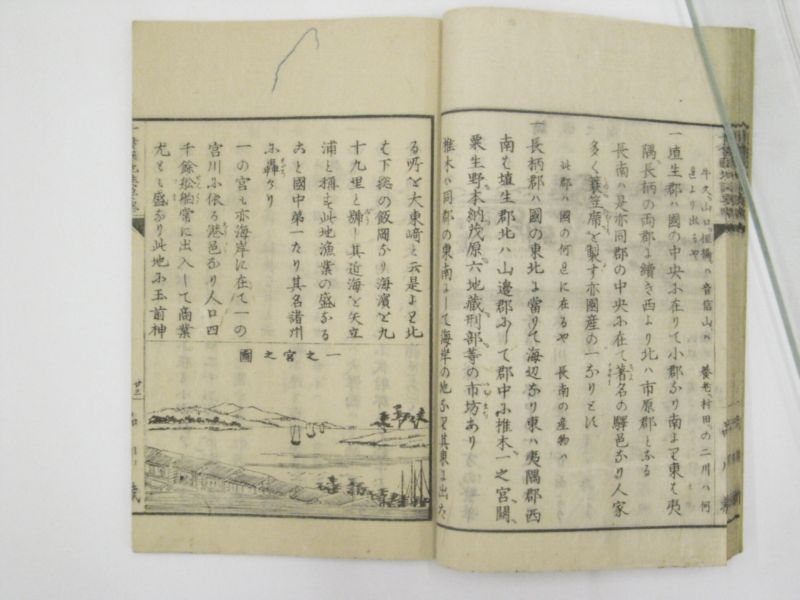 牛久、山口、椎橋ハ音信山ハ養老、村田の二川ハ何
邑より出るや
一埴生郡ハ國の中央に在りて小郡なり南より東は夷
隅長柄の両郡に續き西より北ハ市原郡となる
長南ハ是亦同郡の中央に在て著名の驛邑なり人家
多く蓑笠席を製す亦國産の一なりとす
此郡ハ國の何邑に在るや長南の産物ハ
長柄郡ハ國の東北に當りて海辺なり東ハ夷隅郡西
南は埴生郡北ハ山邊郡にして郡中に椎木一之宮関
粟生野本納茂原六地蔵刑部等の市坊あり
椎木ハ同郡の東南にして海岸の地なり其東に出た
る所を大東﨑と云是より北
は下総の飯岡なり海濱を九
十九里と號し其近海を矢立
浦と稱す此地漁業の盛なる
こと國中第一たり其名諸州
に轟けり
一の宮も亦海岸に在て一の
宮川に依る港邑なり人口四
千餘松舩常に出入して商業
尤とも盛なり此地に玉前神
一之宮之圖
廿三